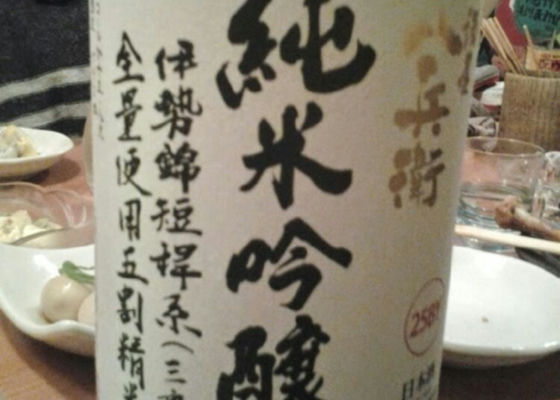 八兵衛
純米吟醸
伊勢錦短稈系(三重
全量使用五割精米
258
日本酒